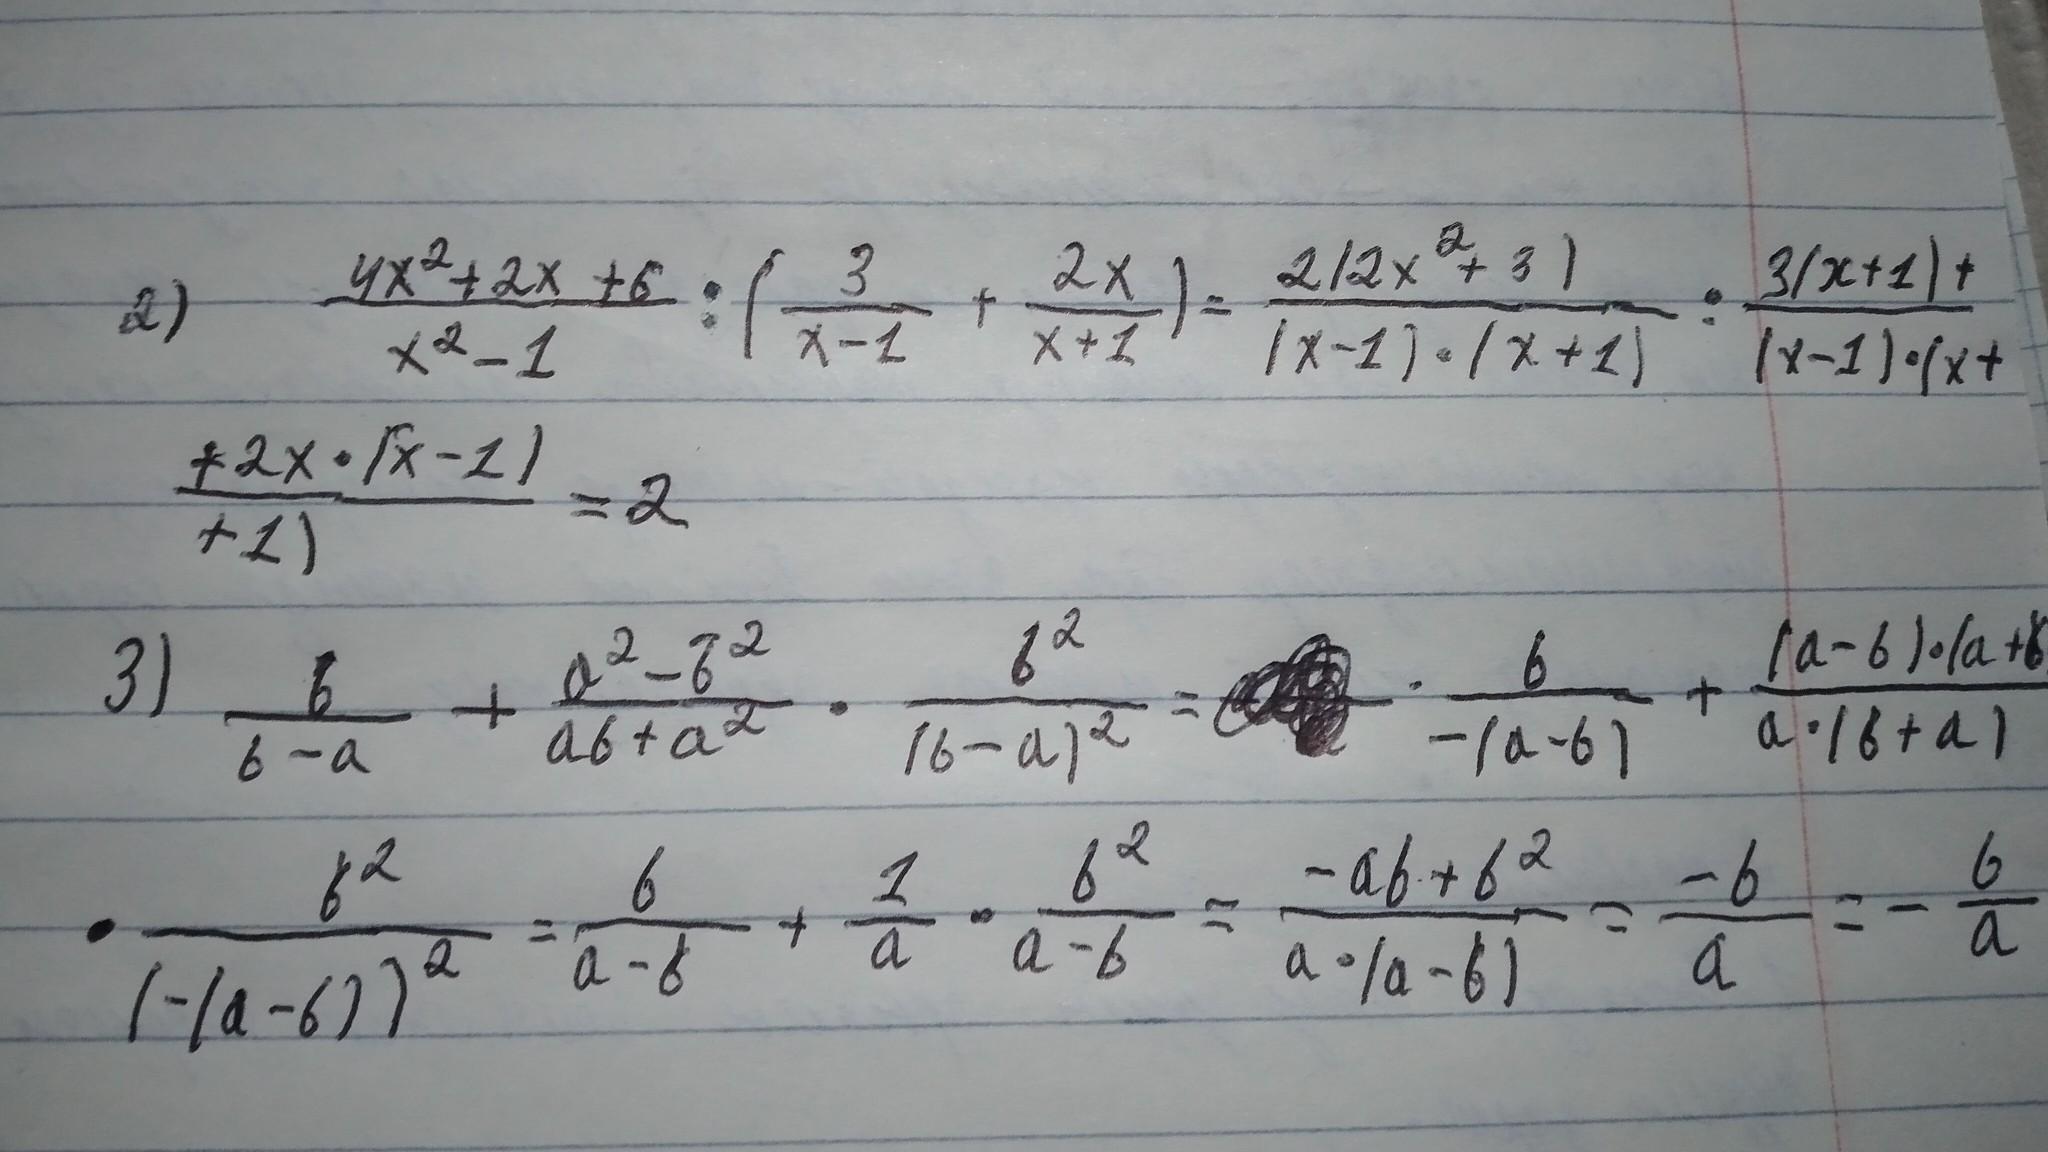 2) (4x²+2x+6)/(x²-1) : (3/(x-1) + 2x/(x+1)) = 2(2x²+3)/((x-1)·(x+1)) : 3(x+1)+/(x-1)·(x+
+2x·(x-1)/+1) = 2
3) b/(b-a) + (a²-b²)/(ab+a²) · b²/(b-a)² = · b/(-(a-b)) + (a-b)·(a+b)/(a·(b+a))
· b²/(-(a-b))² = b/(a-b) + 1/a · b²/(a-b) = (-ab+b²)/(a·(a-b)) = -b/a = - b/a